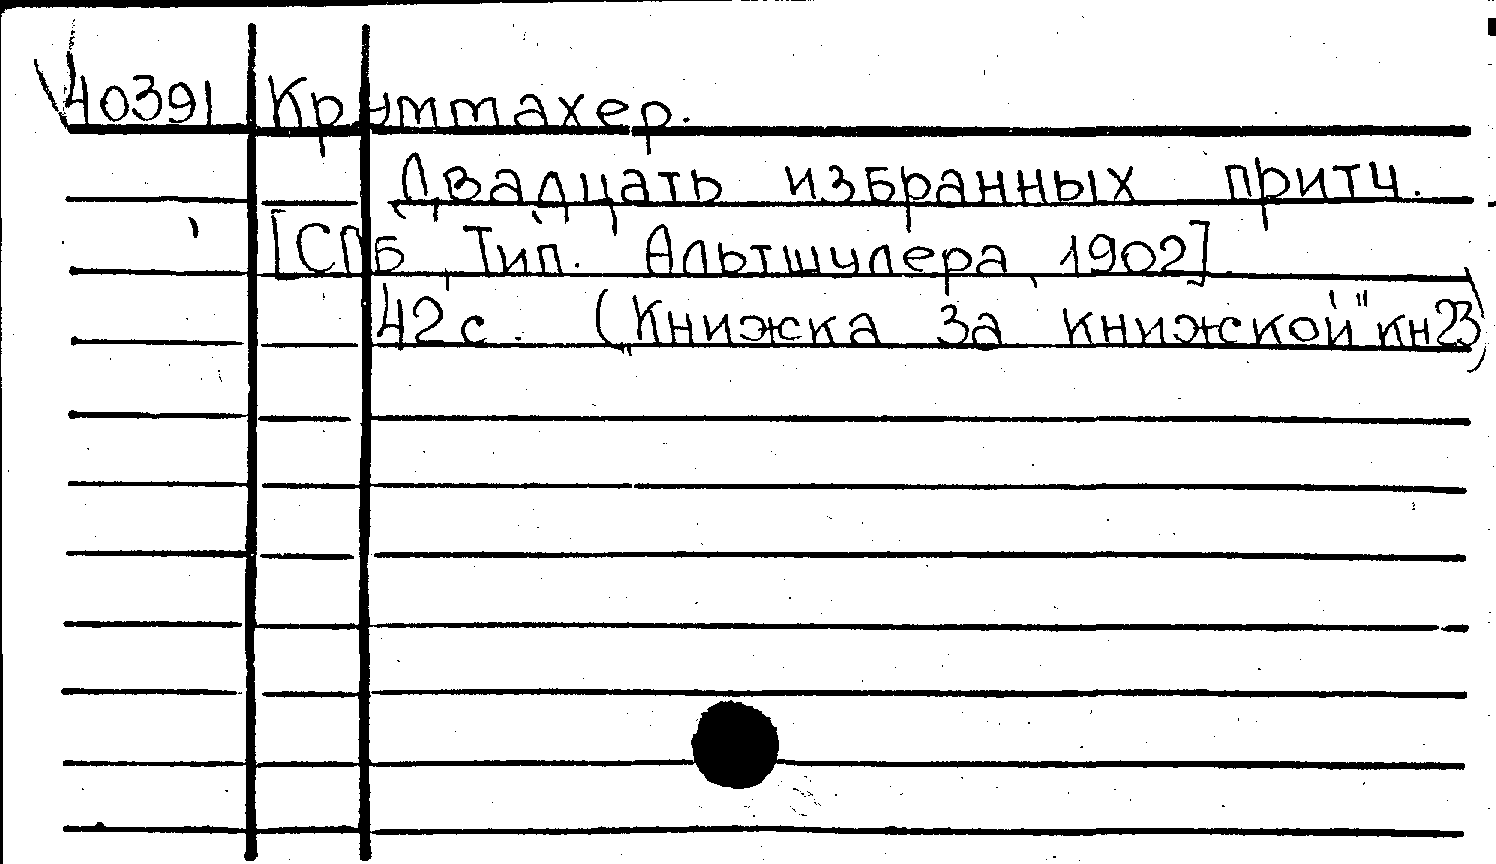 40391 Круммахер.
Двадцать избранных притч.
[СПб, Тип. Альтшулера, 1902]
42с. („Книжка за книжкой" кн23)